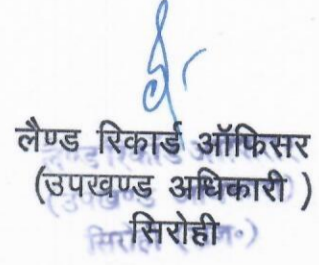 लैण्ड रिकार्ड ऑफिसर
(उपखण्ड अधिकारी )
सिरोही